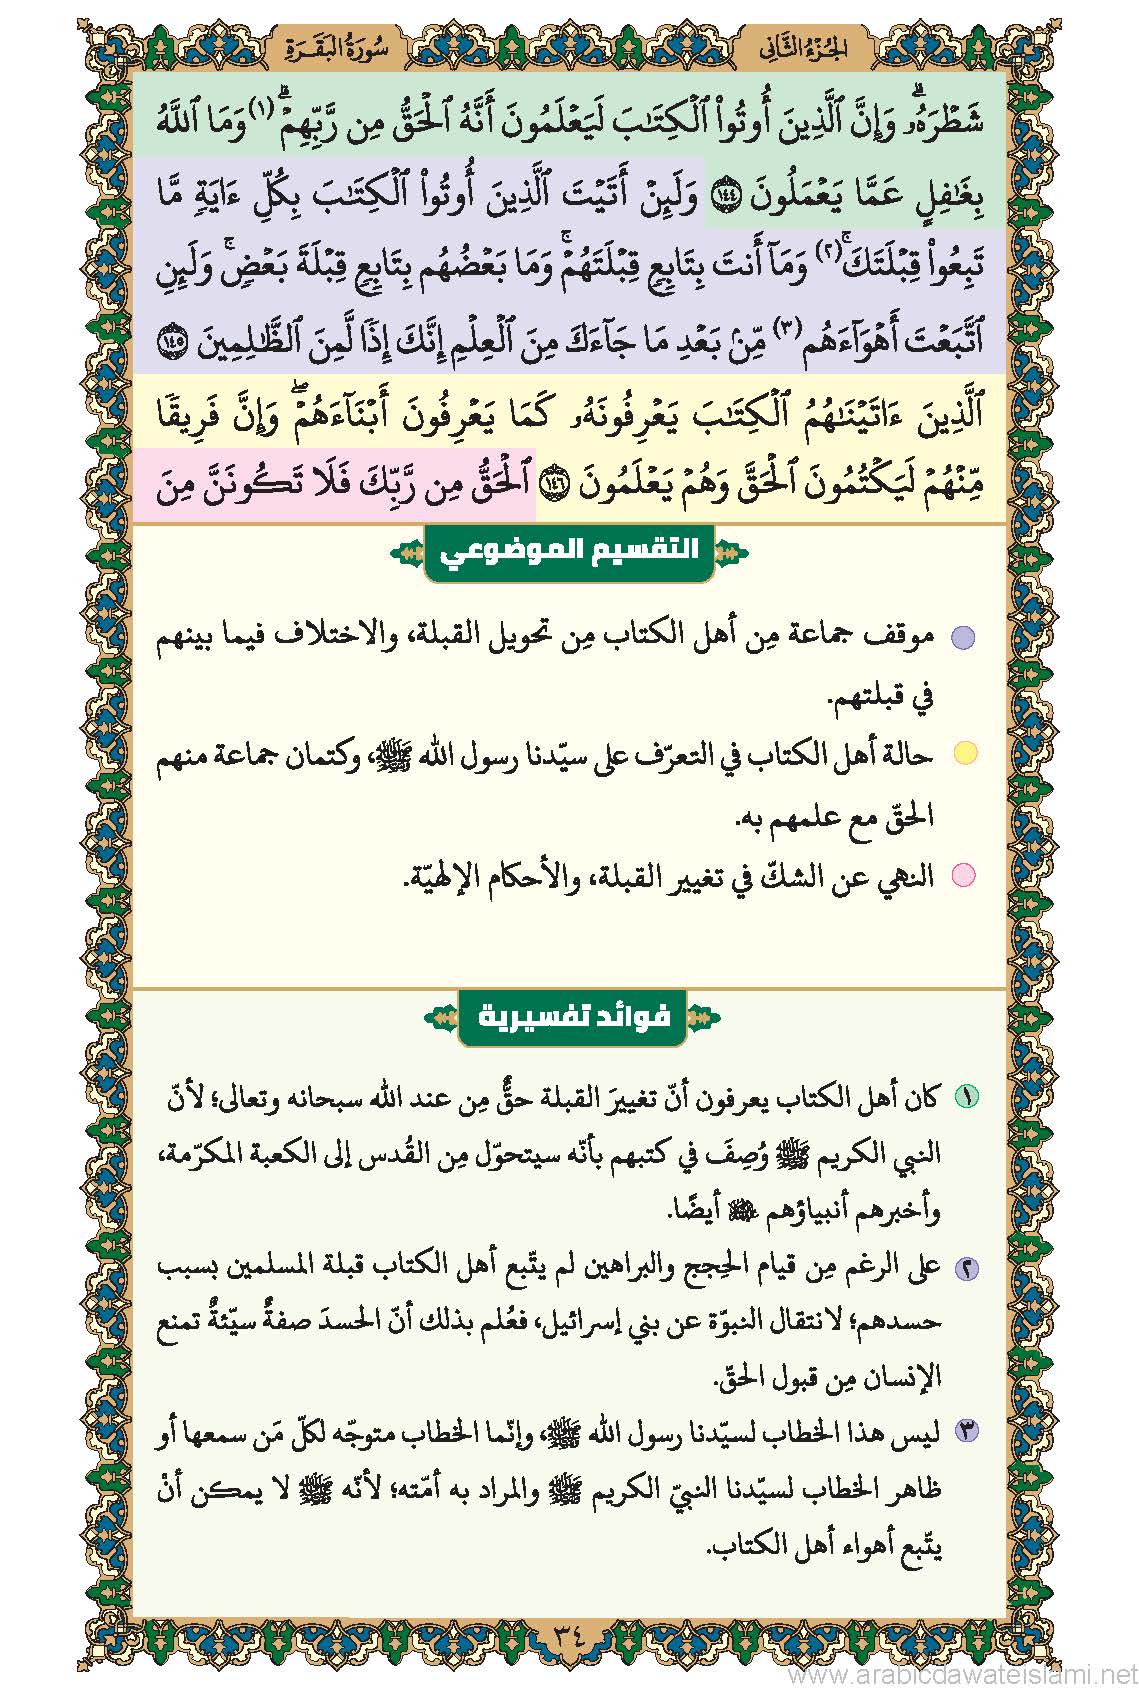 الجُزْءُ الثَّانِی
سُورَةُ البَقَرَةِ
شَطْرَهُۥۗ وَإِنَّ ٱلَّذِينَ أُوتُواْ ٱلْكِتَٰبَ لَيَعْلَمُونَ أَنَّهُ ٱلْحَقُّ مِن رَّبِّهِمْۗ (١) وَمَا ٱللَّهُ
بِغَٰفِلٍ عَمَّا يَعْمَلُونَ ١٤٤ وَلَئِنْ أَتَيْتَ ٱلَّذِينَ أُوتُواْ ٱلْكِتَٰبَ بِكُلِّ ءَايَةٖ مَّا
تَبِعُواْ قِبْلَتَكَۚ (٢) وَمَآ أَنتَ بِتَابِعٖ قِبْلَتَهُمْۚ وَمَا بَعْضُهُم بِتَابِعٖ قِبْلَةَ بَعْضٖۚ وَلَئِنِ
ٱتَّبَعْتَ أَهْوَآءَهُم (٣) مِّنۢ بَعْدِ مَا جَآءَكَ مِنَ ٱلْعِلْمِ إِنَّكَ إِذٗا لَّمِنَ ٱلظَّٰلِمِينَ ١٤٥
ٱلَّذِينَ ءَاتَيْنَٰهُمُ ٱلْكِتَٰبَ يَعْرِفُونَهُۥ كَمَا يَعْرِفُونَ أَبْنَآءَهُمْۖ وَإِنَّ فَرِيقٗا
مِّنْهُمْ لَيَكْتُمُونَ ٱلْحَقَّ وَهُمْ يَعْلَمُونَ ١٤٦ ٱلْحَقُّ مِن رَّبِّكَ فَلَا تَكُونَنَّ مِنَ
التقسيم الموضوعي
موقف جماعة مِن أهل الكتاب مِن تحويل القبلة، والاختلاف فيما بينهم
في قبلتهم.
حالة أهل الكتاب في التعرّف على سيّدنا رسول الله ﷺ، وكتمان جماعة منهم
الحقّ مع علمهم به.
النهي عن الشكّ في تغيير القبلة، والأحكام الإلهيّة.
فوائد تفسيرية
١ كان أهل الكتاب يعرفون أنّ تغييرَ القبلة حقٌّ مِن عند الله سبحانه وتعالى؛ لأنّ
النبي الكريم ﷺ وُصِفَ في كتبهم بأنّه سيتحوّل مِن القُدس إلى الكعبة المكرّمة،
وأخبرهم أنبياؤهم أيضًا.
٢ على الرغم مِن قيام الحِجج والبراهين لم يتّبع أهل الكتاب قبلة المسلمين بسبب
حسدهم؛ لانتقال النبوّة عن بني إسرائيل، فعُلم بذلك أنّ الحسدَ صفةٌ سيّئةٌ تمنع
الإنسان مِن قبول الحقّ.
٣ ليس هذا الخطاب لسيّدنا رسول الله ﷺ، وإنّما الخطاب متوجّه لكلّ مَن سمعها أو
ظاهر الخطاب لسيّدنا النبيّ الكريم ﷺ والمراد به أمّته؛ لأنّه ﷺ لا يمكن أنْ
يتّبع أهواء أهل الكتاب.
٣٤
www.arabicdawateislami.net